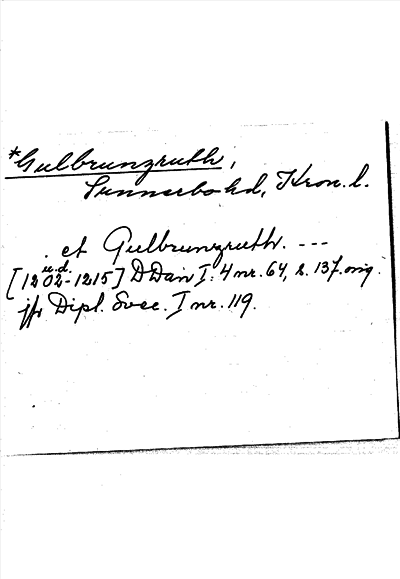 *Gulbrunzruth,
Sunnerbo hd, Kron. l.
. et Gulbrunzruth. ---
u.d.
[1202-1215] DDan I: 4 nr. 64, s. 137. orig.
jfr Dipl. Svec. I nr. 119.